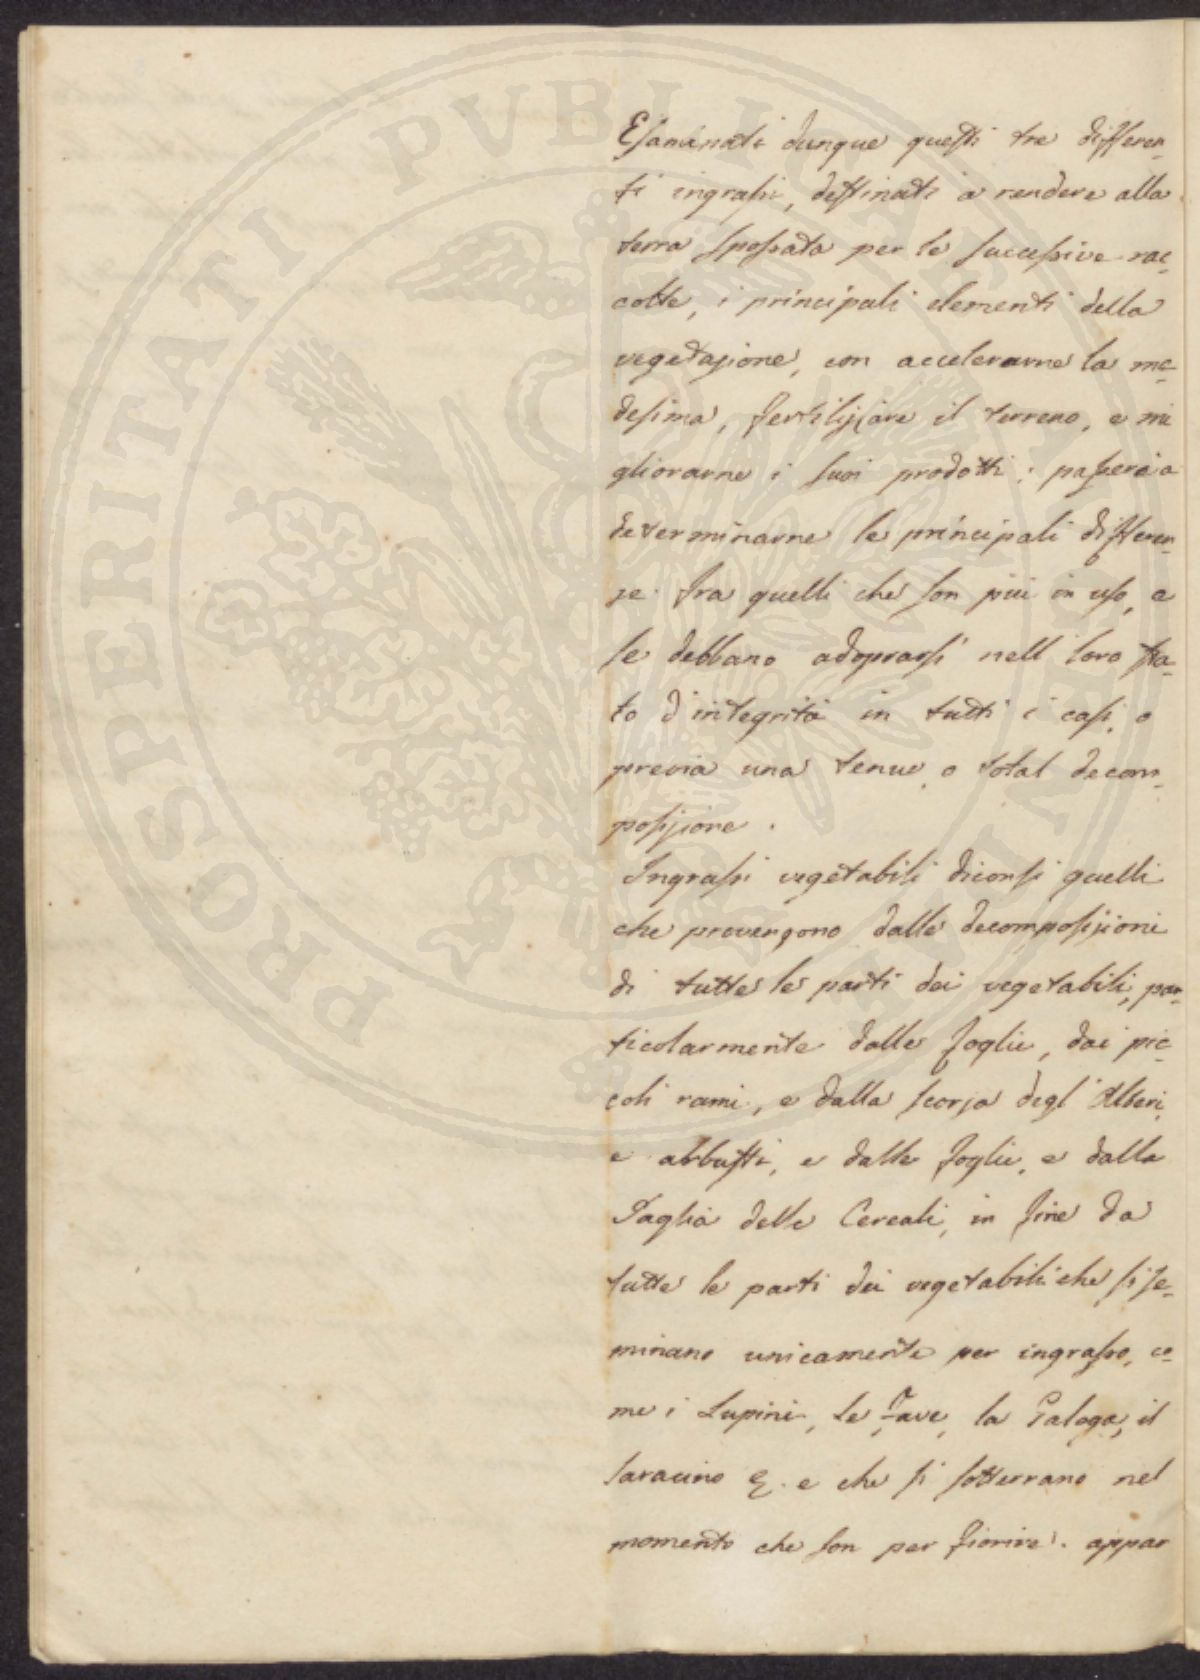 Esaminati dunque questi tre differen-
ti ingrassi, destinati a rendere alla
terra spossata per le successive rac-
colte, i principali elementi della
vegetazione, con accelerarne la me-
desima, fertilizzare il terreno, e mi
gliorarne i suoi prodotti; passerò a
determinarne le principali differen-
ze fra quelli che son più in uso, e
se debbano adoprarsi nell loro sta-
to d'integrità in tutti i casi, o
previa una tenue, o total decom-
posizione.
Ingrassi vegetabili diconsi quelli
che provengono dalle decomposizioni
di tutte le parti dei vegetabili, par-
ticolarmente dalle foglie, dai pic-
coli rami, e dalla scorza degl'Alberi,
e arbusti, e dalle foglie, e dalla
Paglia delle Cereali, in fine da
tutte le parti dei vegetabili che si se-
minano unicamente per ingrasso, co-
me i Lupini, le Fave, la Galega, il
saracino &. e che si sotterrano nel
momento che son per fiorire. appar
PROSPERITATI PUBLICAE